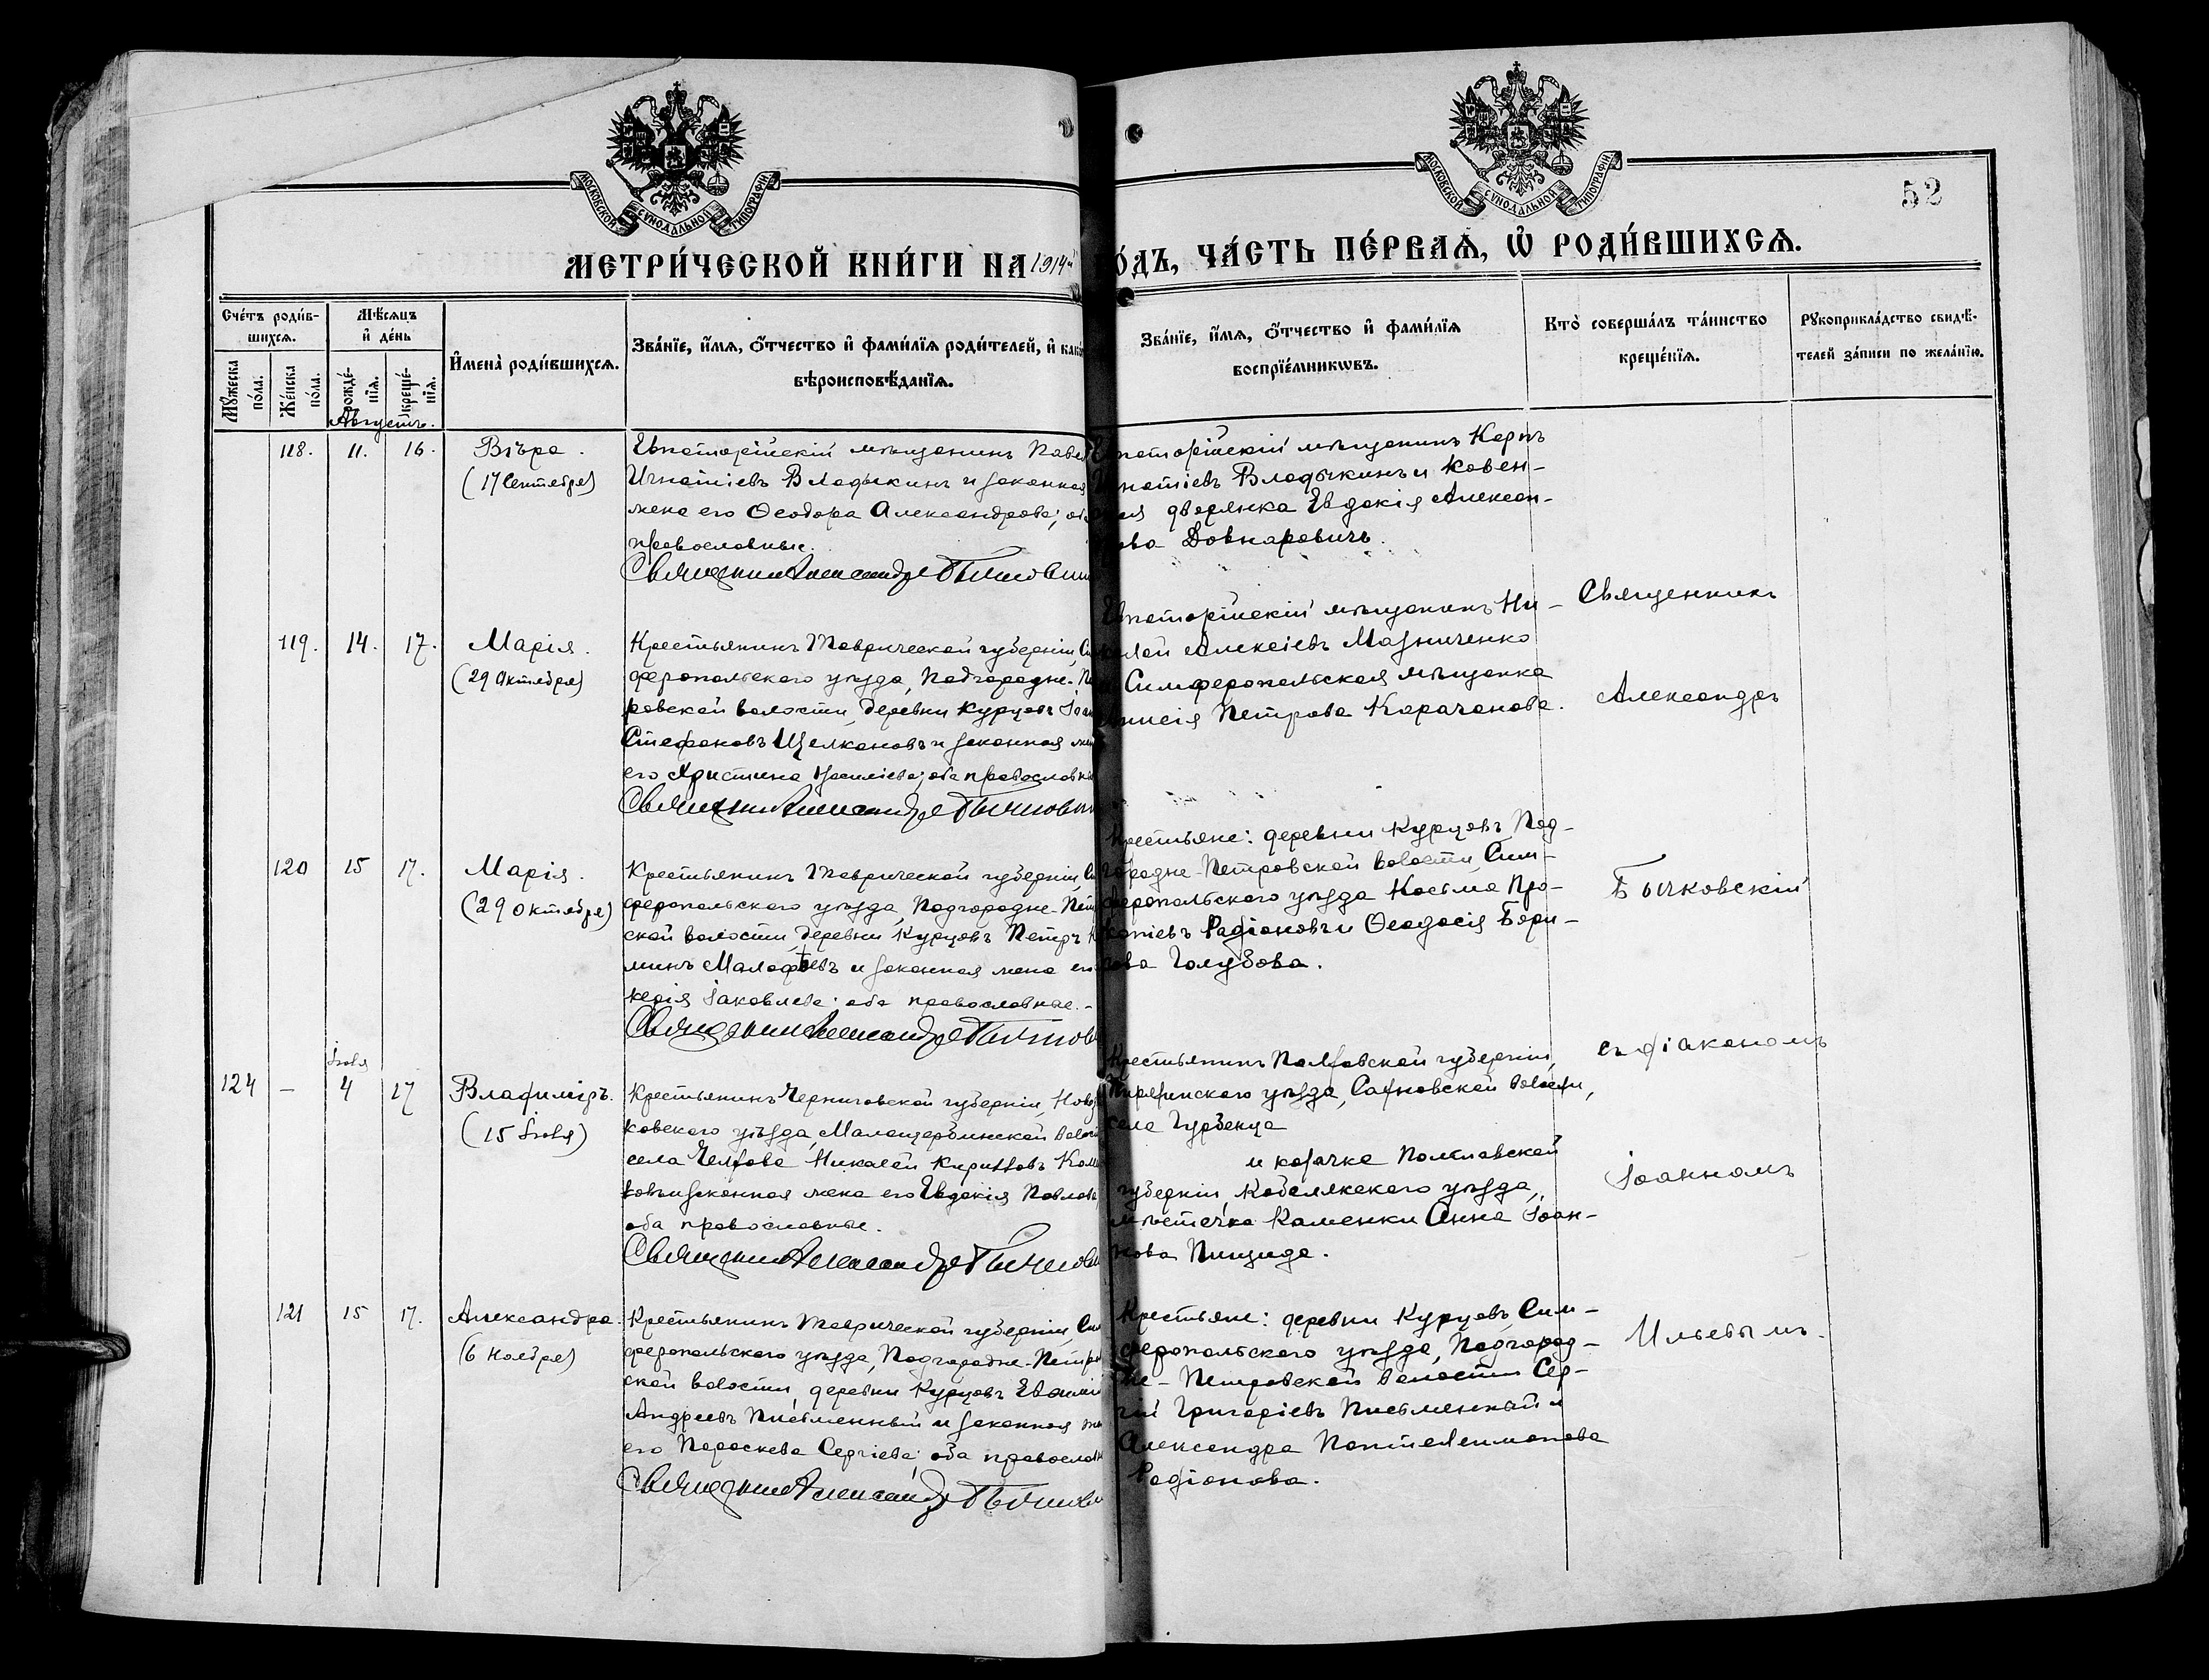 МОСКОВСКОЙ СѴНОДАЛЬНОЙ ТИПОГРАФІИ
МОСКОВСКОЙ СѴНОДАЛЬНОЙ ТИПОГРАФІИ
52
МЕТРИ́ЧЕСКОЙ КНИ́ГИ НА 1914й
О́ДЪ, ЧА́СТЬ ПЕ́РВАѦ, Ѽ РОДИ́ВШИХСѦ.
Сче́тъ роди́в-
шихсѧ.
Мѣ́сѧцъ
и҆ де́нь
Мꙋ́жеска по́ла.
Же́нска по́ла.
рожде́-нїѧ.
креще́-нїѧ.
И҆мена̀ роди́вшихсѧ.
Зва́нїе, и҆́мѧ, ѻ҆́тчество и҆ фами́лїѧ роди́телей, и҆
вѣроисповѣ́данїѧ.
Зва́нїе, и҆́мѧ, ѻ҆́тчество и҆ фами́лїѧ
воспрїе́мникѡвъ.
Кто̀ соверша́лъ та́инство
креще́нїѧ.
Рꙋкоприкла́дство свидѣ́-
телей за́писи по жела́нїю.
Августъ.
118. 11. 16. Вѣра.
(17 Сентября)
Евпаторійскій мѣщанинъ
Игнатіевъ Владыкинъ и законная
жена его Ѳеодора Александрова;
православные.
Священникъ Александръ
Евпаторійскій мѣщанинъ Карпъ
Игнатіевъ Владыкинъ и Ковен-
дворянка Евдокія Алексан-
Довнаровичъ.
119. 14. 17. Марія.
(29 Октября)
Крестьянинъ Таврической губерніи,
феропольского уѣзда, Подгородне-
ровской волости, деревни Курцовъ
Стефановъ Щелкановъ и законная
его Христина оба православные
Священникъ Александръ
Евпаторійскій мѣщанинъ Ни-
колай Алексіевъ Мазниченко
Симферопольская мѣщанка
Петрова Карачанова.
120 15 17. Марія.
(29 Октября)
Крестьянинъ Таврической губерніи,
феропольского уѣзда, Подгородне-
ской волости, деревни Курцовъ Петръ
минъ Малафѣевъ и законная жена его
керія Іаковлева; оба православные.-
Священникъ Александръ
Крестьяне: деревни Курцовъ, Под-
городне-Петровской волости, Сим-
феропольского уѣзда Косьма Про-
копіевъ Радіоновъ и Ѳеодосія Бори-
сова Голубова.
Іюля
124 — 4 17 Владиміръ.
(15 Іюля)
Крестьянинъ Черниговской губерніи,
ковского уѣзда,
села Николай Кирилловъ
законная жена его Евдокія Павлова,
оба православные.
Священникъ Александръ
Крестьянинъ Полтавской губерніи,
Пирятинского уѣзда, волости,
села Гурбенца
и козачка Полтавской
губерніи, Кобелякского уѣзда,
мѣстечка Каменки Анна Іоан-
нова
121 15 17. Александра.
(6 Ноября)
Крестьянинъ Таврической губерніи,
феропольского уѣзда, Подгородне-
ской волости, деревни Курцовъ
Андреевъ Письменный и законная
его Параскева Сергіева; оба
Священникъ Александръ
Крестьяне: деревни Курцовъ, Сим-
феропольского уѣзда, Подгород-
не-Петровской волости Сер-
гій Григоріевъ Письменный и
Александра Пантелеимонова
Радіонова.
Священникъ
Александръ
Бычковскій
съ діакономъ
Іоанномъ
Ильевымъ.